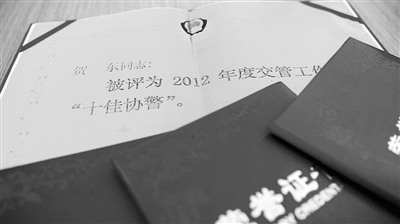 贺 东同志：
被评为 2012 年度交管工作
“十佳协警”。
荣誉证
CREDENT
荣